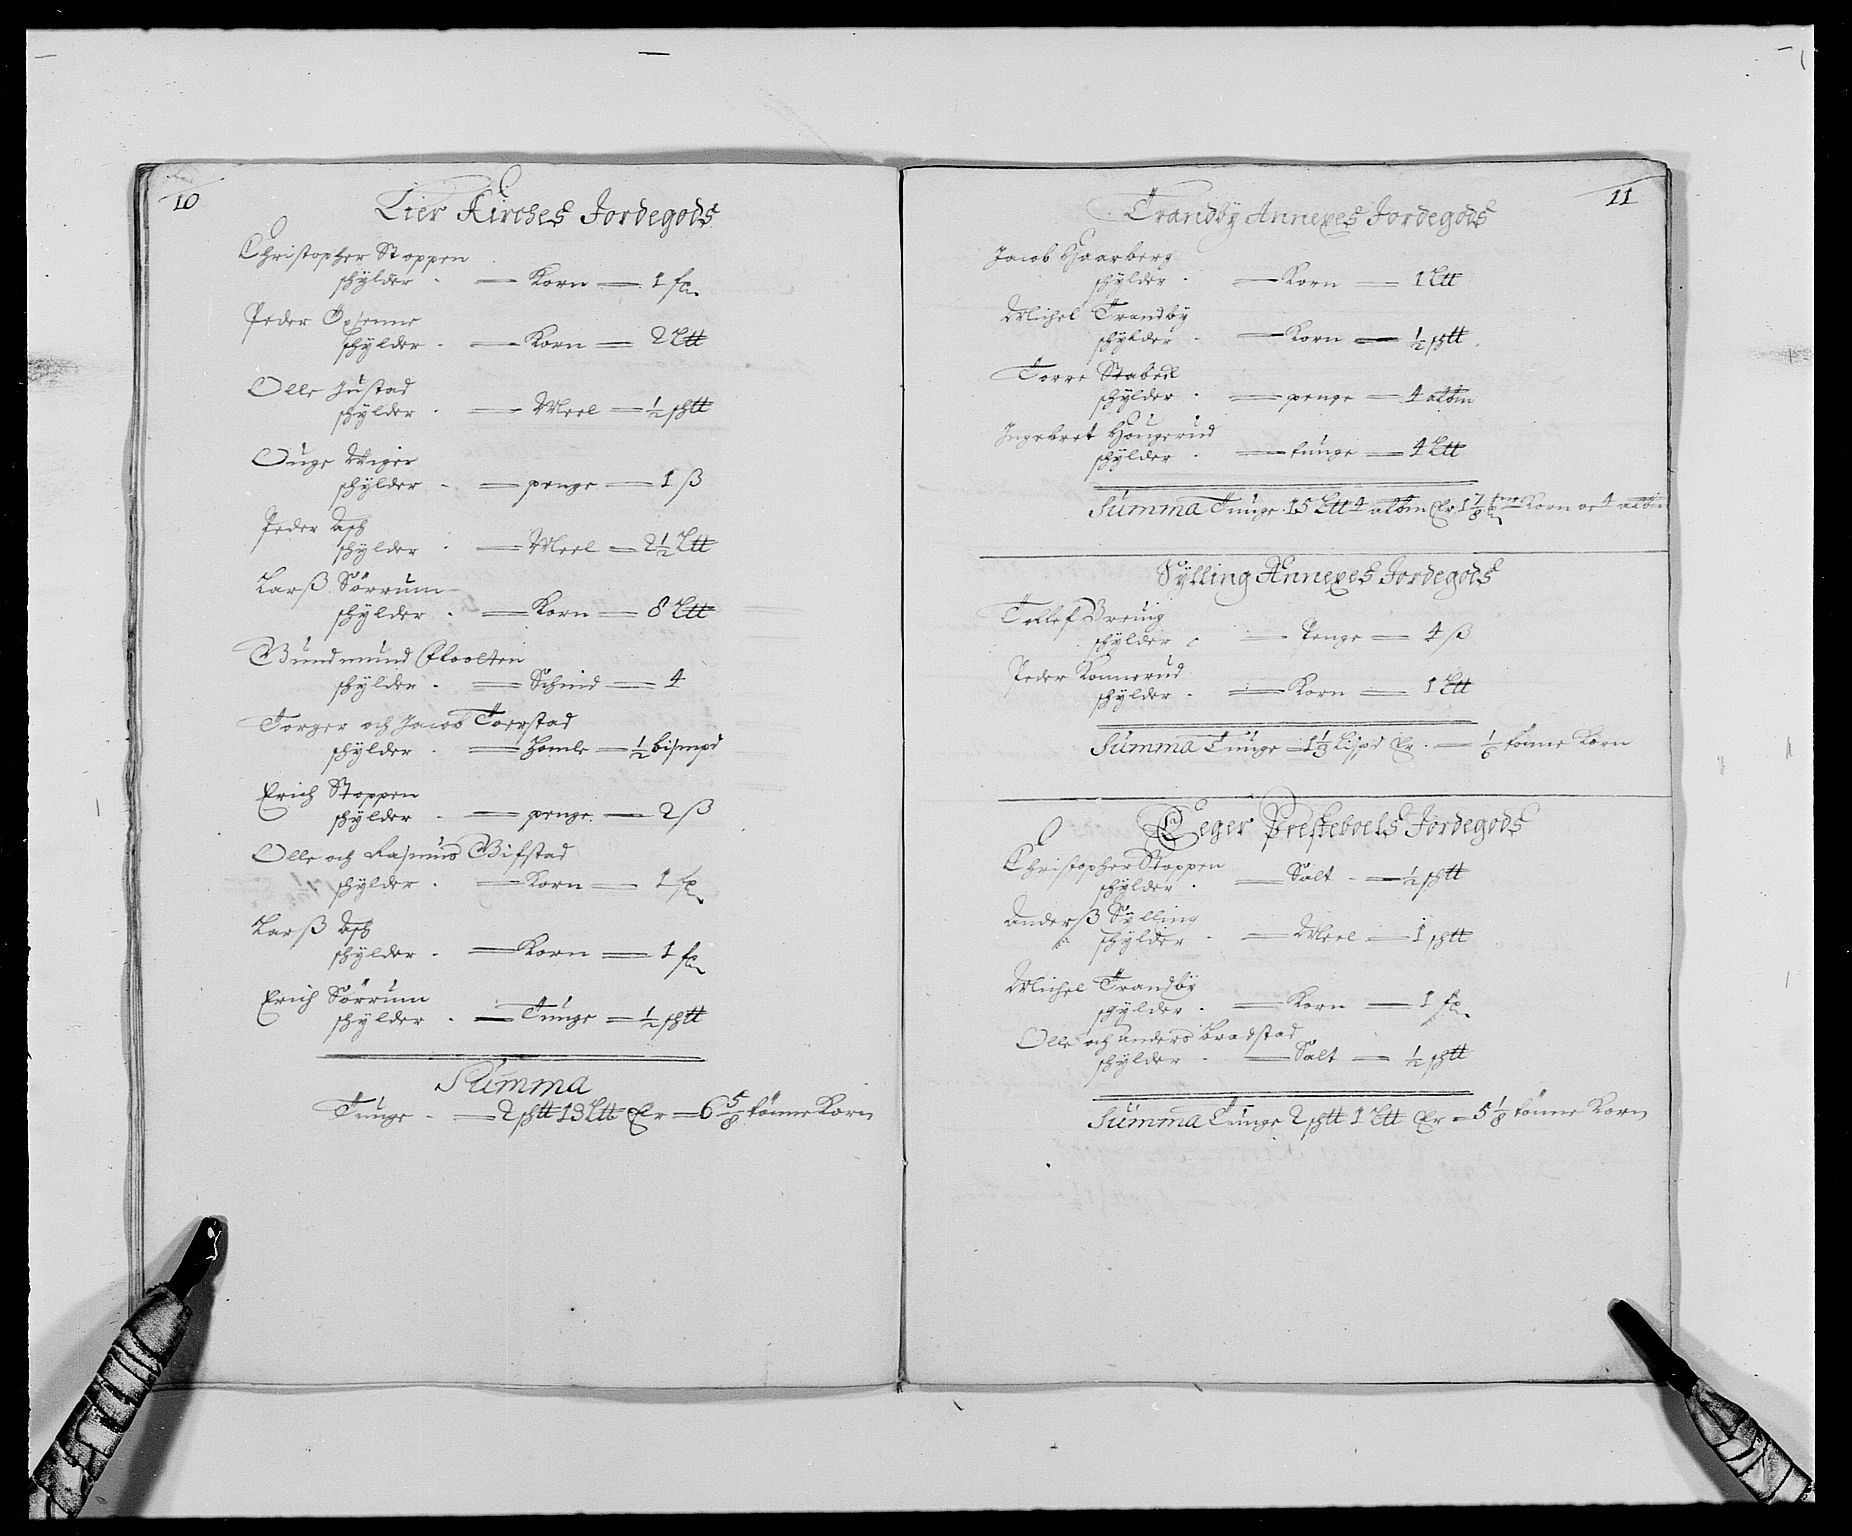 10
Lier Kirches Jordegods
Christopher Stoppen
schylder - Korn - 1 fr
Peder Opsenne
schylder - Korn - 2 Ltt
Olle Justad
schylder - Meel - ½ sktt
Ouge Wiger
schylder - penge - 1 ß
Peder Ask
schylder - Meel - 2½ Ltt
Larß Sörrum
schylder - Korn - 8 Ltt
Gundmund
schylder - Schind - 4
Torger och Jacob Toerstad
schylder - Homle - ½ bismpd
Erich Stoppen
schylder - penge - 2 ß
Olle och Rasmus Gifstad
schylder - Korn - 1 fr
Larß Ask
schylder - Korn - 1 fr
Erich Sörrum
schylder - Tunge - ½ sktt
Summa
Tunge - 2 sktt 13 Ltt Er - 6 5/8 tönne Korn
11
Trandby Annexes Jordegods
Jacob Haarberg
schylder - Korn - 1 Ltt
Michel Trandby
schylder - Korn - ½ sktt
Torre Stabeck
schylder - penge - 4 alb̄m
Ingebret Hougerud
schylder - tunge - 4 Ltt
Summa Tunge 15 Ltt 4 alb̄m Er 1 7/8 Korn oc 4 alb̄m
Sylling Annexes Jordegods
Tollef Dreng
schylder - Penge - 4 ß
Peder Konnerud
schylder - Korn - 1 Ltt
Summa Tunge - 1 1/3 Lispd Er - 1/6 tönne Korn
Eeger Presteboels Jordegods
Christopher Stoppen
schylder - Salt - ½ sktt
Anderß Sylling
schylder - Meel - 1 sktt
Michel Trandby
schylder - Korn - 1 fr
Olle och Anders Bradstad
schylder - Salt - ½ sktt
Summa Tunge 2 sktt 1 Ltt Er - 5 1/8 tönne Korn